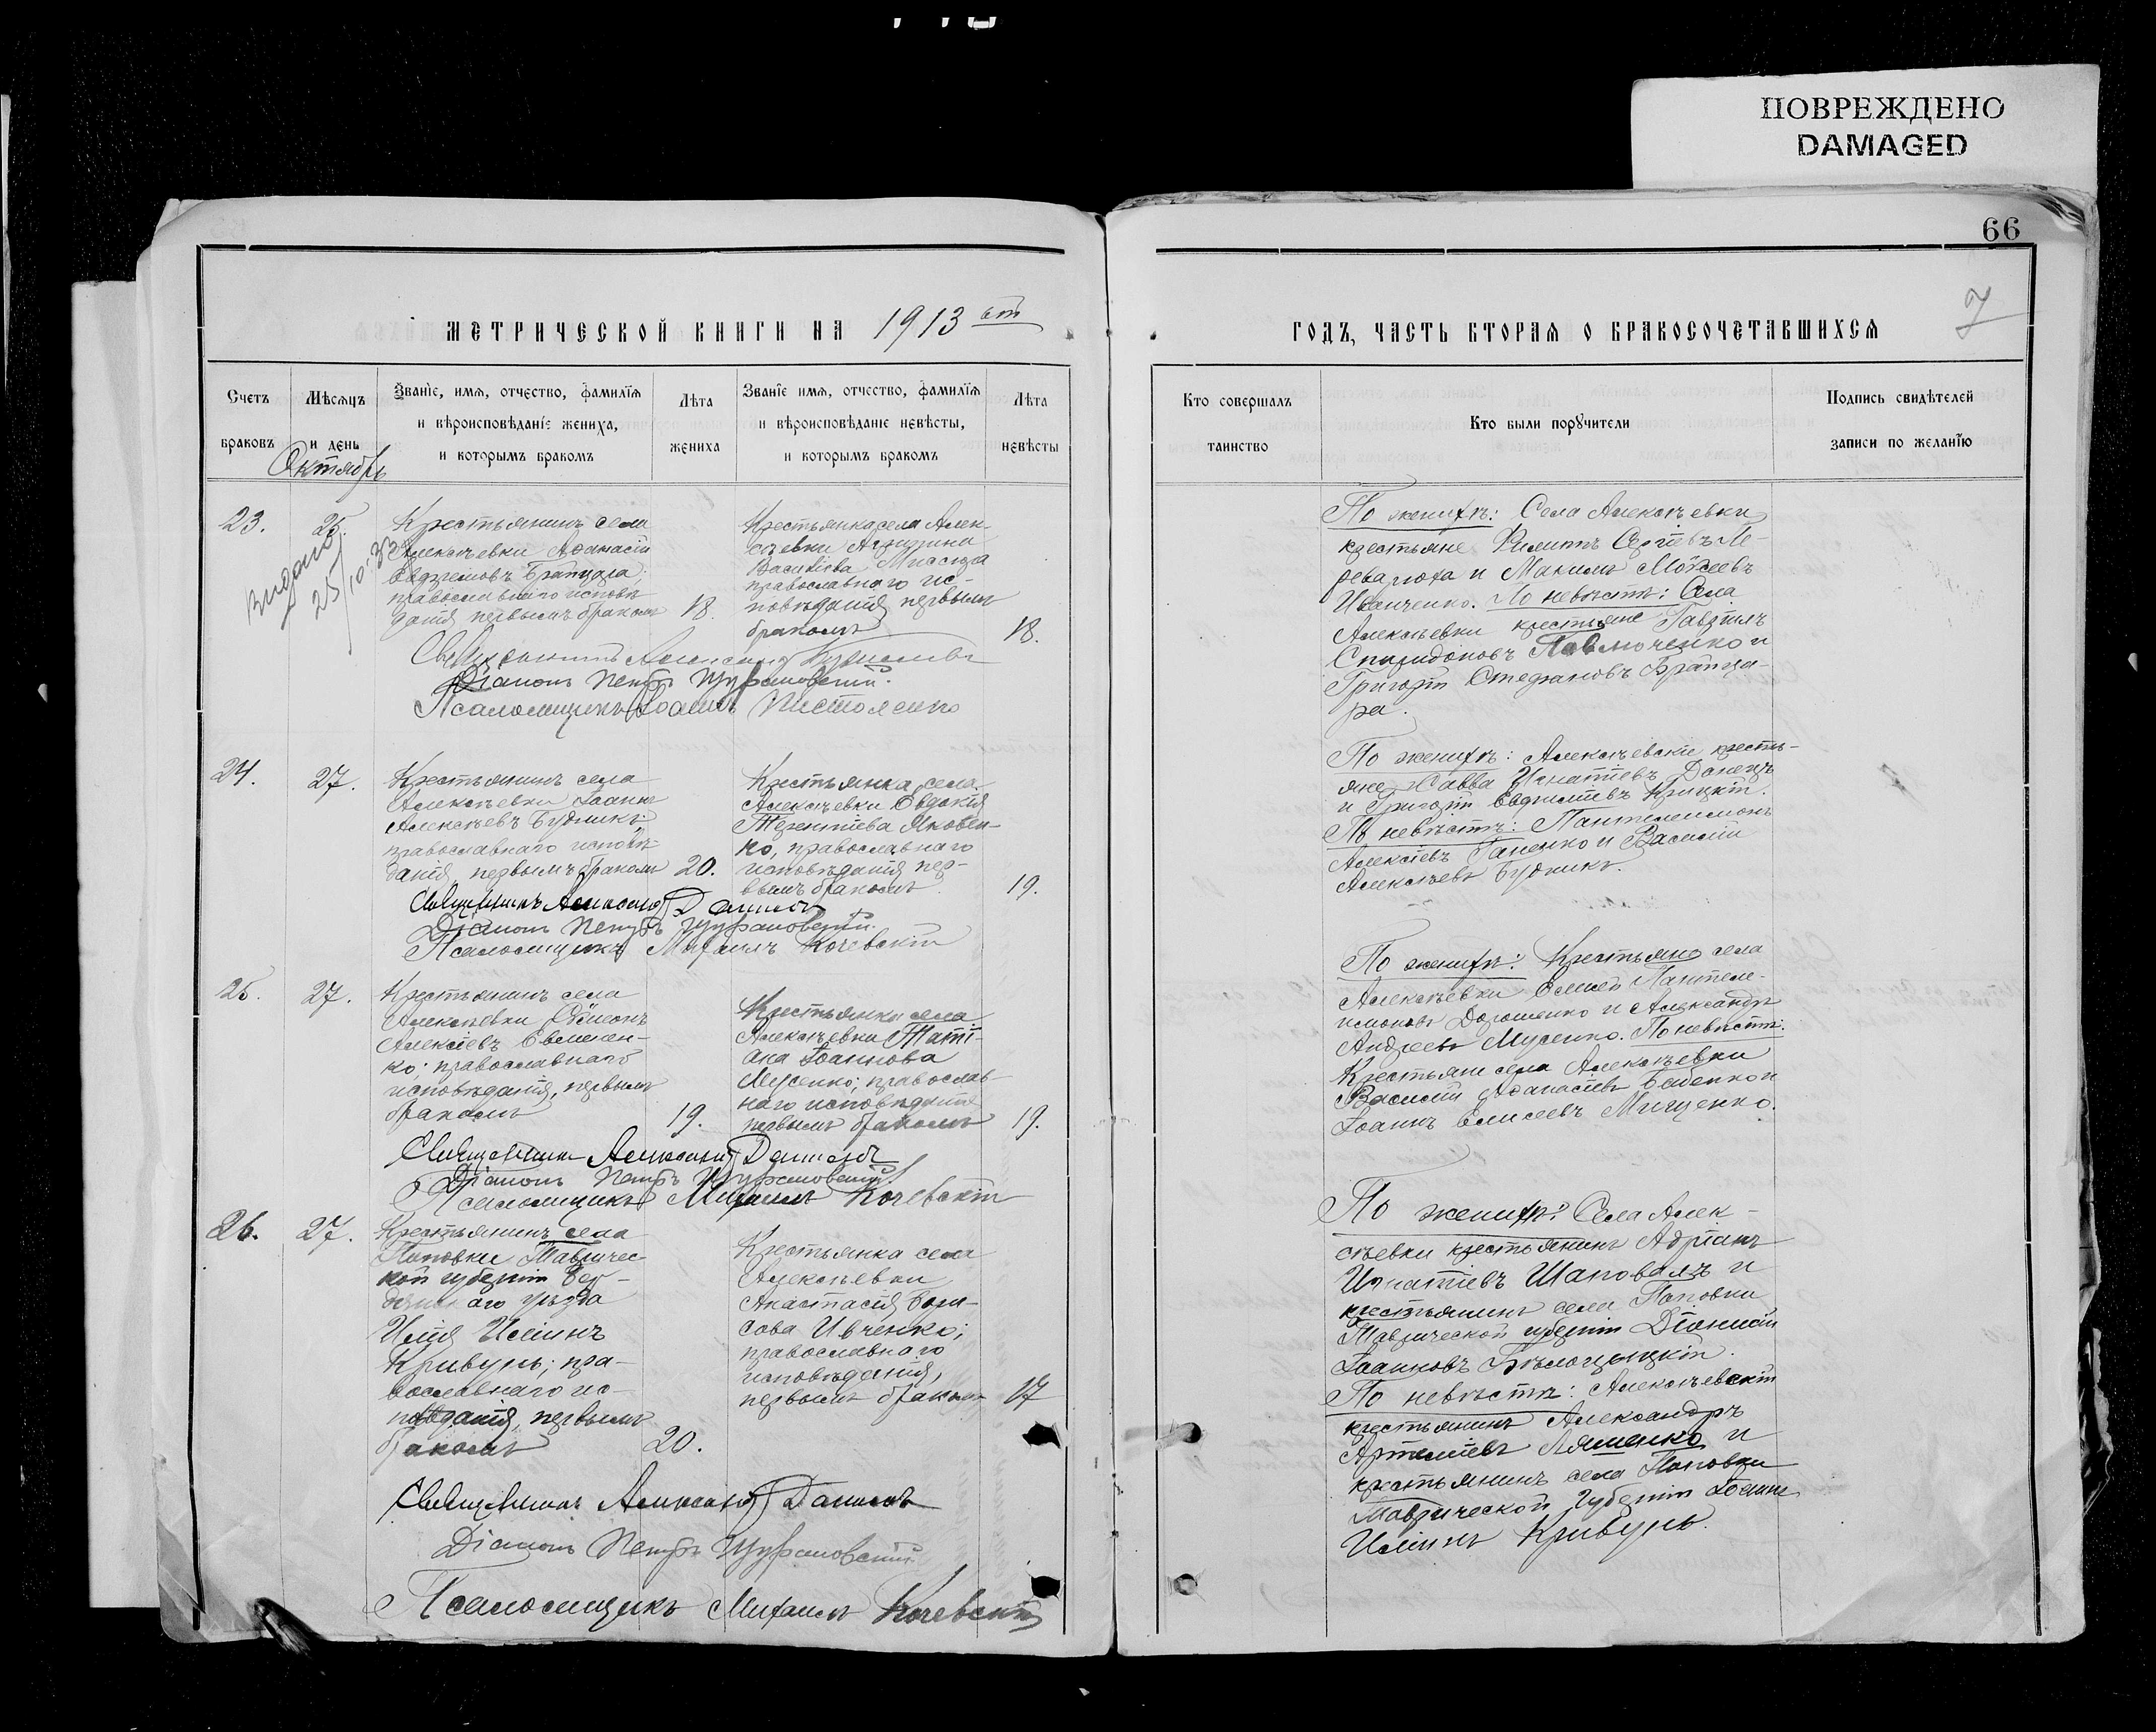 ПОВРЕЖДЕНО
DAMAGED
66
7
МЕТРИЧЕСКОЙ КНИГИ НА 1913 ый
ГОДЪ, ЧАСТЬ ВТОРАЯ О БРАКОСОЧЕТАВШИХСЯ
Счетъ браковъ
Мѣсяцъ и день
Званіе, имя, отчество, фамилія и вѣроисповѣданіе жениха, и которымъ бракомъ
Лѣта жениха
Званіе имя, отчество, фамилія и вѣроисповѣданіе невѣсты, и которымъ бракомъ
Лѣта невѣсты
Кто совершалъ таинство
Кто были поручители
Подпись свидѣтелей записи по желанію
Октябрь
23.
25.
Видано
25/10-33
Крестьянинъ села
Алексѣевки Аѳанасій
православнаго исповѣ-
данія первымъ бракомъ
18
Крестьянка села Алек-
сѣевки
Васильева
православнаго ис-
повѣданія первымъ
бракомъ
18.
Діаконъ Петръ
Псаломщикъ Іоаннъ
По женихѣ: Села Алексѣевки
крестьяне Филиппъ Сергіевъ Пе-
и Максимъ Моѵсеевъ
Иванченко. По невѣстѣ: Села
Алексѣевки крестьяне Гавріилъ
Спиридоновъ Павлюченко и
Григорій Стефановъ Брапца-
ра.
24.
27.
Крестьянинъ села
Алексѣевки Іоаннъ
Алексѣевъ Будникъ
православнаго исповѣ-
данія, первымъ бракомъ
20.
Крестьянка села
Алексѣевки Евдокія
Терентіева Яковен-
ко, православнаго
исповѣданія пер-
вымъ бракомъ.
19.
Священникъ Александръ Даниловъ
Діаконъ Петръ
Псаломщикъ Михаилъ Кочевскій
По женихѣ: Алексѣевскіе кресть-
яне Савва Игнатіевъ Донецъ
и Григорій Крицкій.
По невѣстѣ: Пантелеимонъ
Алексіевъ Гаценко и Василій
Алексѣевъ Будникъ.
25.
27.
Крестьянинъ села
Алексѣевки Сѵмеонъ
Алексіевъ Евмен-
ко; православнаго
исповѣданія, первымъ
бракомъ
19.
Крестьянка села
Алексѣевки Таті-
ана Іоаннова
Мусенко; православ-
наго исповѣданія
первымъ бракомъ
19.
Священникъ Александръ Даниловъ
Діаконъ Петръ
Псаломщикъ Михаилъ Кочевскій
По женихѣ: Крестьяне села
Алексѣевки Пантеле-
имоновъ Дорошенко и Александръ
Андреевъ Мусенко. По невѣстѣ:
Крестьяне села Алексѣевки
Василій Аѳанасіевъ и
Іоаннъ Елисеевъ Мищенко.
26.
27.
Крестьянинъ села
Поповки Тавричес-
кой губерніи Бер-
дянскаго уѣзда
Илія Иліинъ
Кривунь; пра-
вославнаго ис-
повѣданія, первымъ
бракомъ
20.
Крестьянка села
Алексѣевки
Анастасія Бори-
сова Ивченко;
православнаго
исповѣданія,
первымъ бракомъ
17
Священникъ Александръ Даниловъ
Діаконъ Петръ
Псаломщикъ Михаилъ Кочевскій
По женихѣ: Села Алек-
сѣевки крестьянинъ Адріанъ
Игнатіевъ Шаповалъ и
крестьянинъ села Поповки
Таврической губерніи Діонисій
Іоанновъ
По невѣстѣ: Алексѣевскій
крестьянинъ Александръ
Артеміевъ Ляшенко и
крестьянинъ села Поповки
Таврической губерніи Іоаннъ
Иліинъ Кривунь.